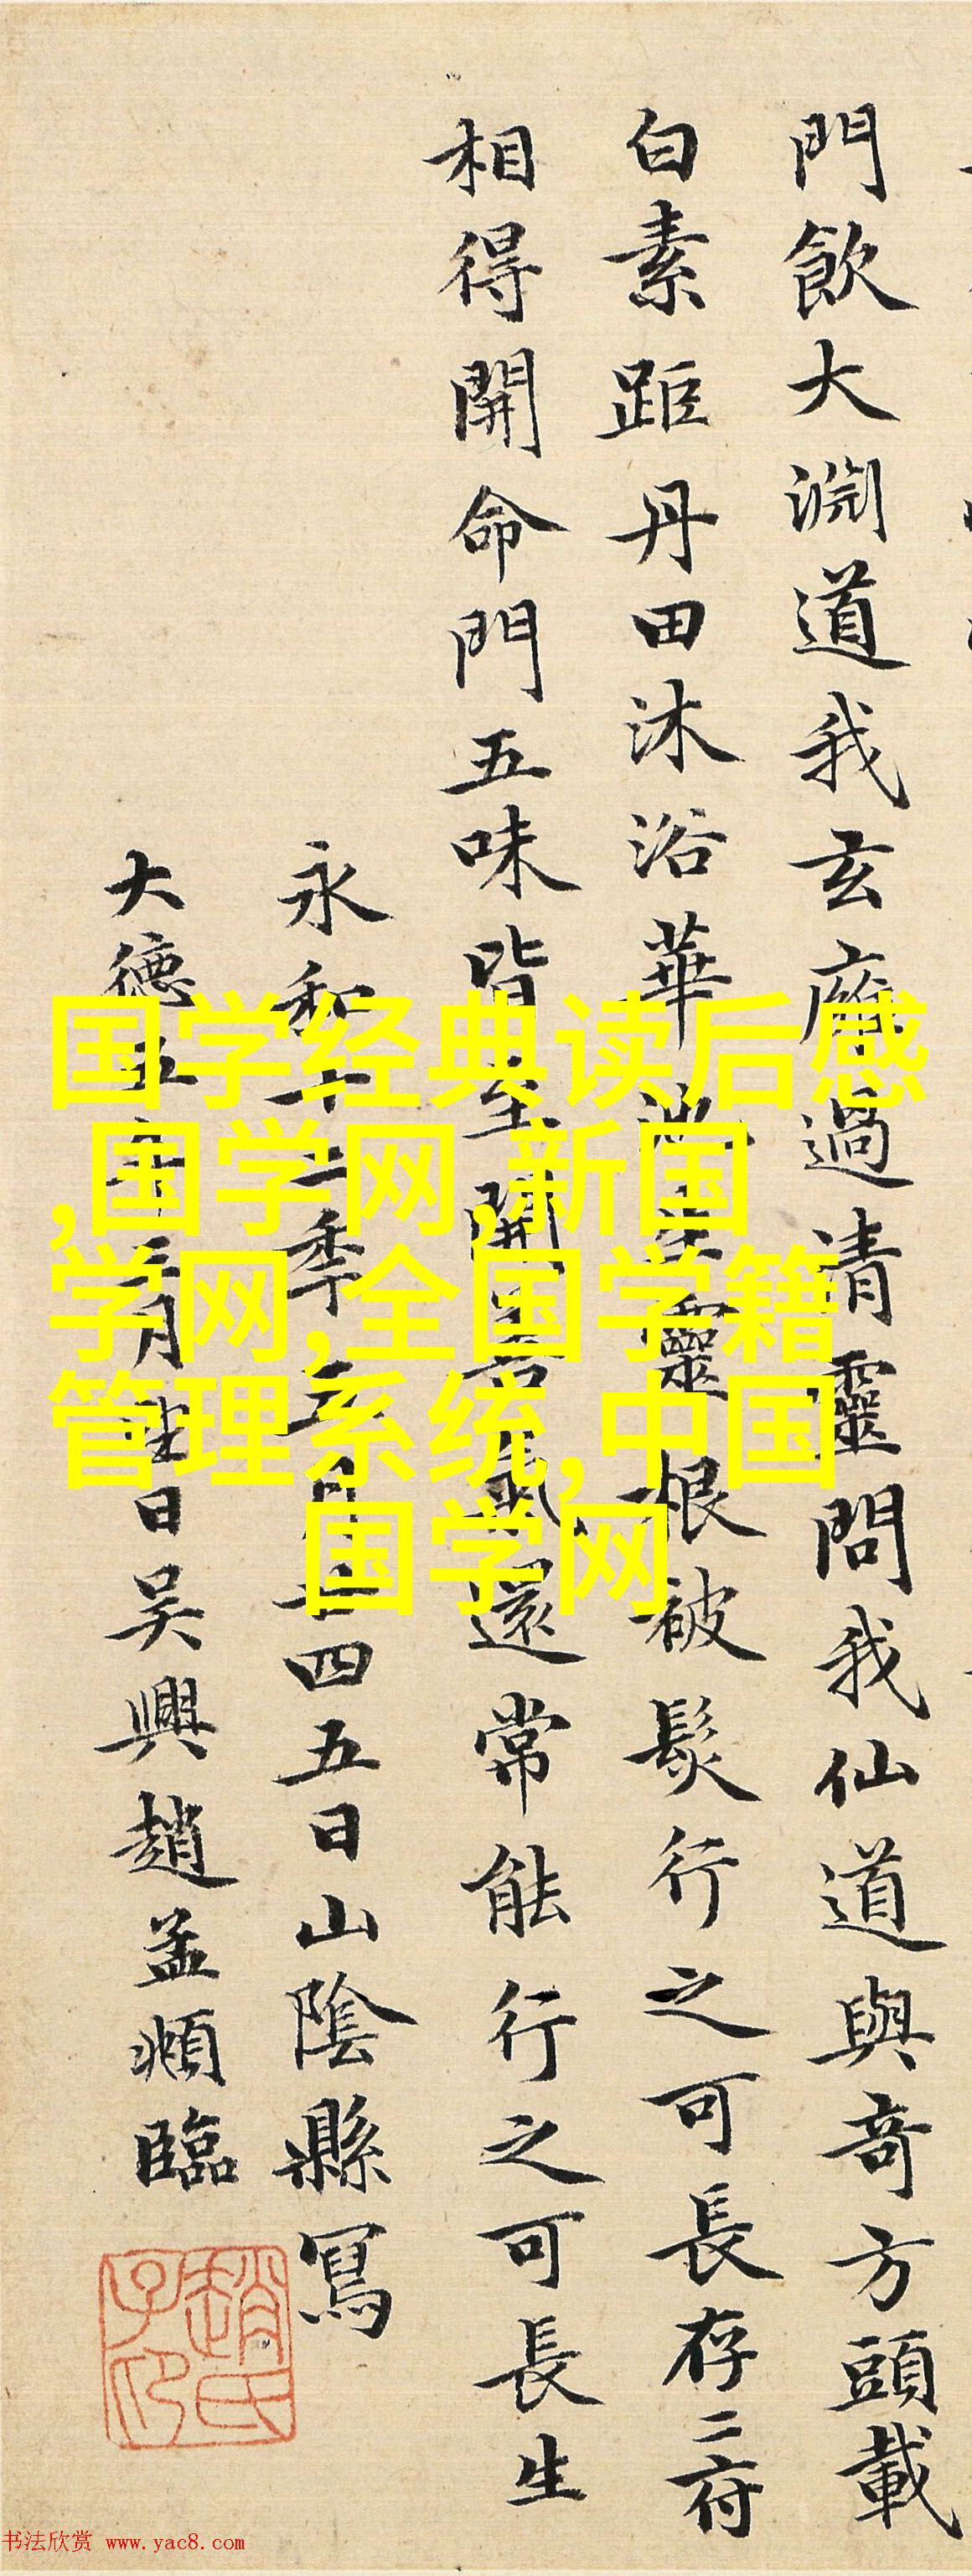 門飲大淵道我玄廱過清靈問我仙道與奇方頭載
白素距丹田沐浴華池生靈根被髮行之可長存二府
相得開命門五味皆至開善氣還常能行之可長生
永和十二季五月廿四五日山陰縣寫
大德五年三月日吴興趙孟頫臨
趙氏子印
国学经典读后感
,国学网,新国
学网,全国学籍
管理系统,中国
国学网
书法欣赏 www.yac8.com